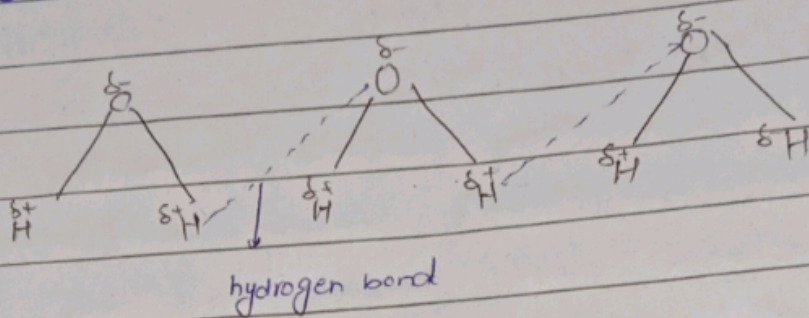 δ- δ- δ-
O O O
δ+ H δ+ H δ+ H δ+ H δ+ H δ H
hydrogen bond